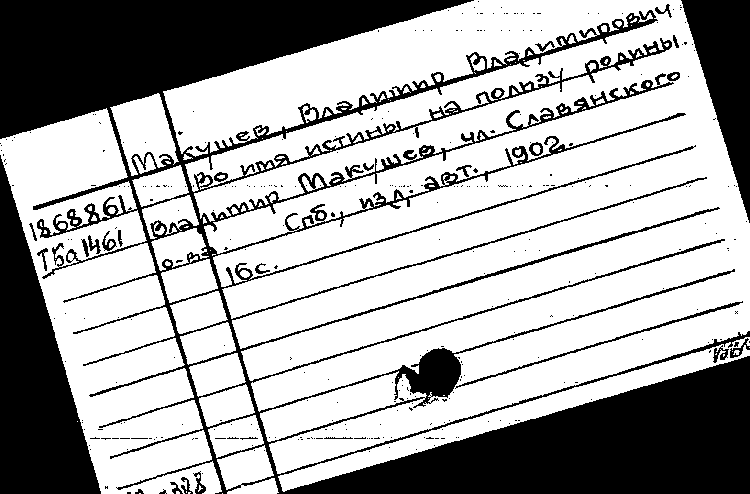 Макушев, Владимир Владимирович
Во имя истины, на пользу родины.
1868861. Владимир Макушев, чл. Славянского
Тба1461 о-ва. Спб., изд. авт., 1902.
16с.